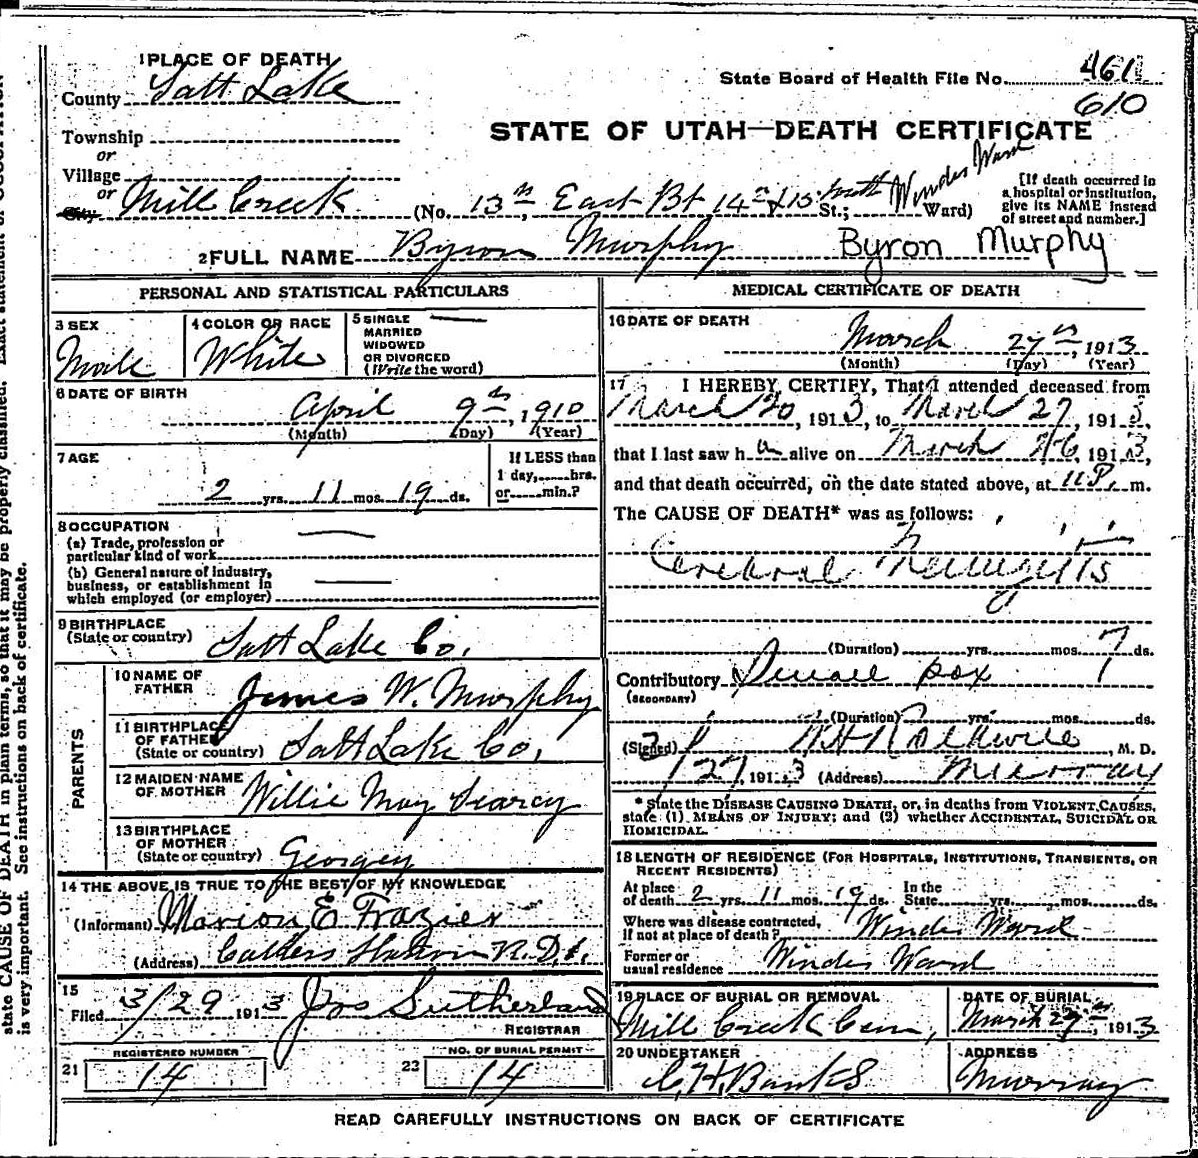 1 PLACE OF DEATH
County Salt Lake
Township
or
Village
or
City Mill Creek
State Board of Health File No. 461
610
STATE OF UTAH—DEATH CERTIFICATE
(No. 13th East Bt 14th & 15 South St.; Winder Ward Ward)
[If death occurred in
a hospital or institution,
give its NAME instead
of street and number.]
2 FULL NAME Byron Murphy Byron Murphy
PERSONAL AND STATISTICAL PARTICULARS
3 SEX
Male
4 COLOR OR RACE
White
5 SINGLE
MARRIED
WIDOWED
OR DIVORCED
(Write the word)
6 DATE OF BIRTH
April 9th, 1910
(Month) (Day) (Year)
7 AGE
2 yrs. 11 mos. 19 ds.
If LESS than
1 day,......hrs.
or......min.?
8 OCCUPATION
(a) Trade, profession or
particular kind of work
(b) General nature of industry,
business, or establishment in
which employed (or employer)
9 BIRTHPLACE
(State or country) Salt Lake Co.
PARENTS
10 NAME OF
FATHER James W. Murphy
11 BIRTHPLACE
OF FATHER
(State or country) Salt Lake Co.
12 MAIDEN NAME
OF MOTHER Willie May Searcy
13 BIRTHPLACE
OF MOTHER
(State or country) Georgey
14 THE ABOVE IS TRUE TO THE BEST OF MY KNOWLEDGE
(Informant) Marion E Frazier
(Address) R.D.1.
15
Filed 3/29 1913 Jos Sutherland
REGISTRAR
21 REGISTERED NUMBER
14
22 NO. OF BURIAL PERMIT
14
MEDICAL CERTIFICATE OF DEATH
16 DATE OF DEATH
March 27th, 1913
(Month) (Day) (Year)
17 I HEREBY CERTIFY, That I attended deceased from
March 20, 1913, to March 27, 1913,
that I last saw h alive on March 26, 1913,
and that death occurred, on the date stated above, at 11 P. m.
The CAUSE OF DEATH* was as follows:
Cerebral Meningitis
(Duration) yrs. mos. 7 ds.
Contributory Small pox
(SECONDARY)
(Duration) yrs. mos. ds.
(Signed) , M. D.
3/27, 1913 (Address) Murray
* State the DISEASE CAUSING DEATH, or, in deaths from VIOLENT CAUSES,
state (1) MEANS OF INJURY; and (2) whether ACCIDENTAL, SUICIDAL OR
HOMICIDAL.
18 LENGTH OF RESIDENCE (FOR HOSPITALS, INSTITUTIONS, TRANSIENTS, OR
RECENT RESIDENTS)
At place
of death 2 yrs. 11 mos. 19 ds.
In the
State yrs. mos. ds.
Where was disease contracted,
if not at place of death? Winder Ward
Former or
usual residence Winder Ward
19 PLACE OF BURIAL OR REMOVAL
Mill Creek Cem,
DATE OF BURIAL
March 29th, 1913
20 UNDERTAKER
C.H. Banks
ADDRESS
Murray
READ CAREFULLY INSTRUCTIONS ON BACK OF CERTIFICATE
state CAUSE OF DEATH in plain terms, so that it may be properly classified. Exact statement of OCCUPATION
is very important. See instructions on back of certificate.